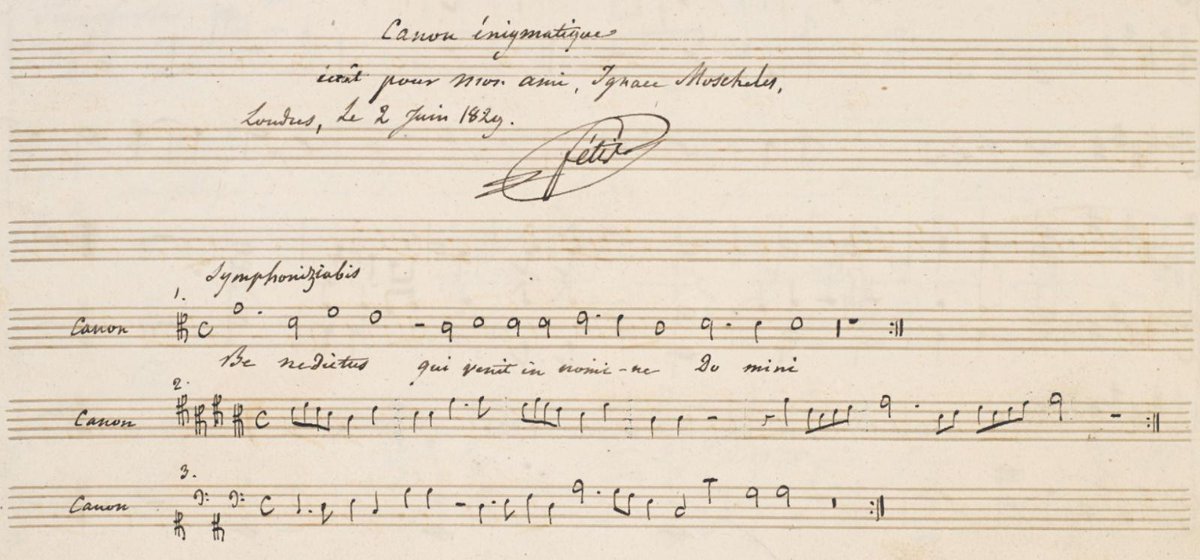 Canon énigmatique
écrit pour mon ami, Ignace Moscheles,
Londres, Le 2 Juin 1829.
fétis
Symphoniziabis
1.
Canon
Be nedictus qui venit in nomi-ne Do mini
2.
Canon
3.
Canon